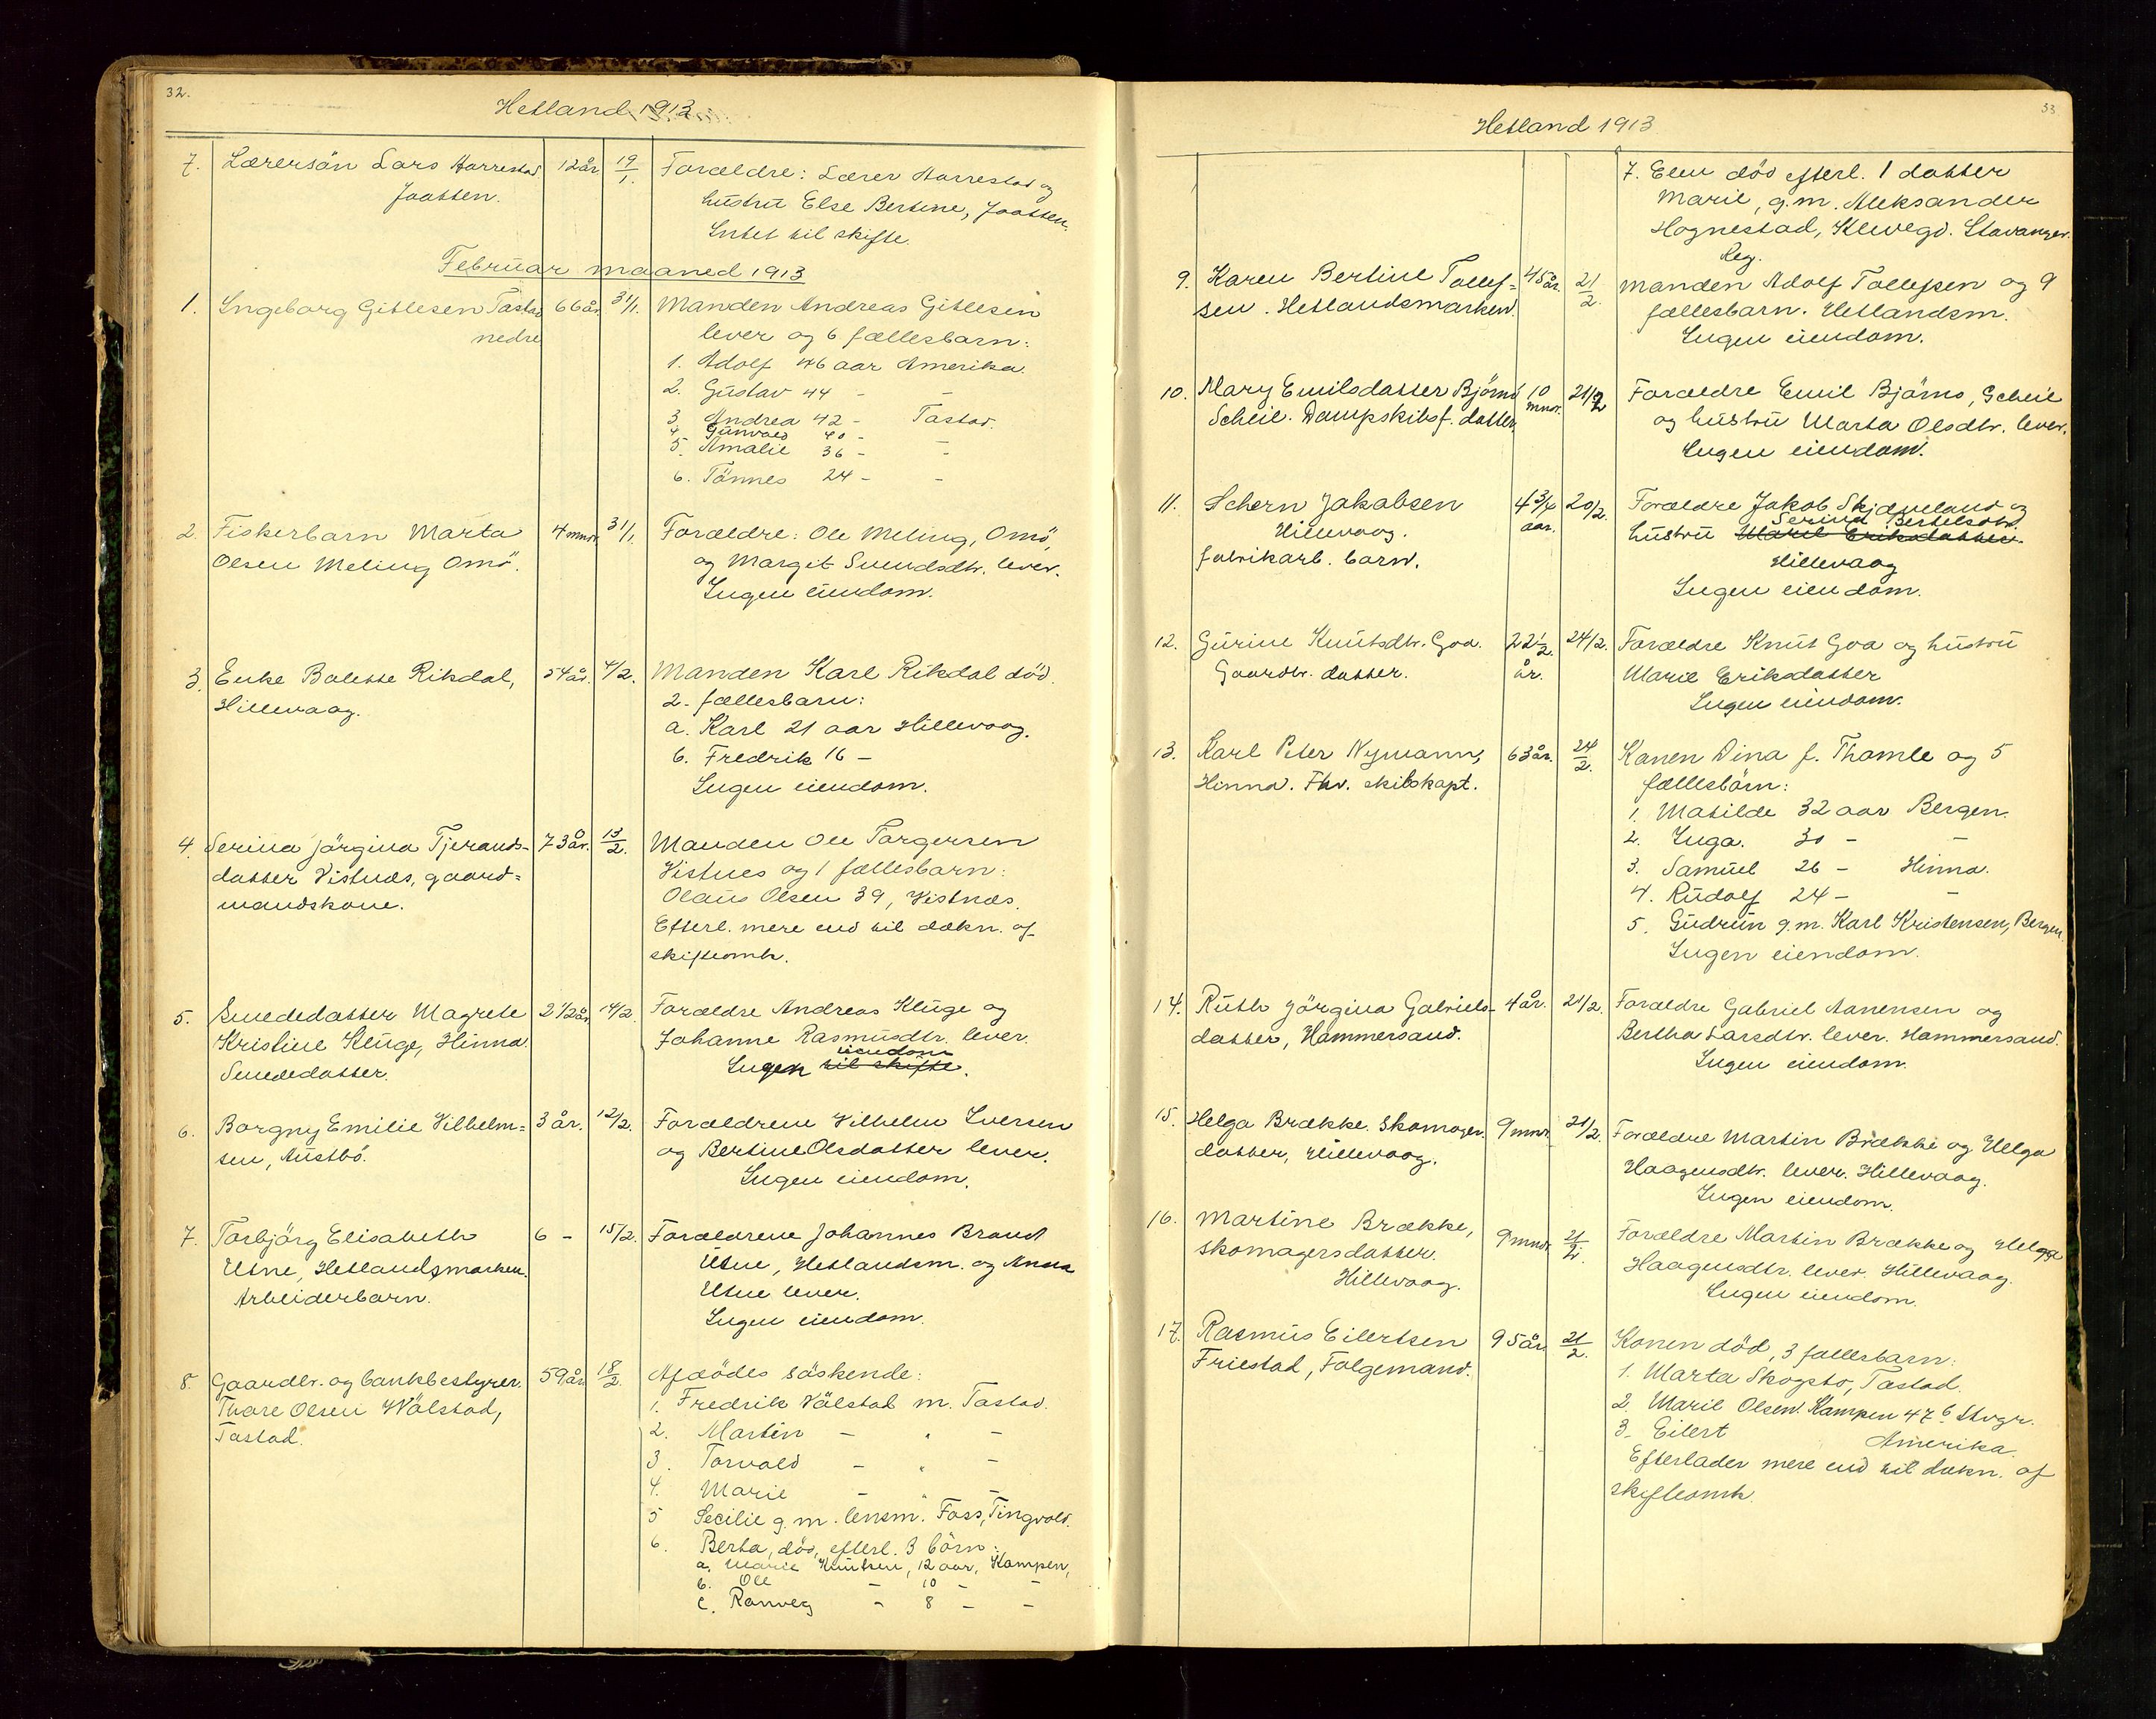 32.
Hetland 1913
7. Lærersön Lars Harrestad 12 år 19/1. Forældre: Lærer Harrestad og
Jaatten. hustru Else Bertine, Jaatten.
Intet til skifte.
Februar maaned 1913
1. Ingeborg Gitlesen Tastad 66 år 31/1. Manden Andreas Gitlesen
nedre lever og 6 fællesbarn:
1. Adolf 46 aar Amerika.
2. Gustav 44 - -
3 Andrea 42 - Tastad.
4. Gunvald 40 -
5. Amalie 36 - -
6. Tönnes 24 - -
2. Fiskerbarn Marta 4 mnd. 31/1. Forældre: Ole Meling, Omö,
Olsen Meling Omö. og Margit Svendsdtr. lever.
Ingen eiendom.
3. Enke Balette Rikdal, 54 år. 4/2. Manden Karl Rikdal död.
Hillevaag. 2. fællesbarn:
a. Karl 21 aar Hillevaag.
b. Fredrik 16 -
Ingen eiendom.
4. Serina Jörgina Tjerands- 73 år. 13/2. Manden Ole Torgersen
datter Vistnæs, gaard= Vistnes og 1 fællesbarn:
mandskone. Olaus Olsen 39, Vistnæs.
Efterl. mere end til dækn. af
skifteomk.
5. Smededatter Magrete 2 1/2 år 14/2. Forældre Andreas Kluge og
Kristine Kluge, Hinna. Johanne Rasmusdtr. lever.
Smededatter. Ingen til skifte. eiendom
6. Borgny Emilie Vilhelm= 3 år. 12/2. Forældrene Vilhelm Iversen
sen, Austbö. og Bertine Olsdatter lever.
Ingen eiendom.
7. Torbjörg Elisabeth 6 - 15/2. Forældrene Johannes Brand
Utne, Hetlandsmarken. Utne, Hetlandsm. og Anna
Arbeiderbarn. Utne lever.
Ingen eiendom.
8. Gaardbr. og bankbestyrer. 59 år 18/2. Afdödes söskende:
Thore Olsen Vålstad, 1. Fredrik Vålstad m. Tastad.
Tastad. 2. Martin - " -
3. Torvald - " -
4. Marie - " -
5 Secilie g. m. lensm. Foss, Tingvold.
6. Berta, död, efterl. 3 börn:
a. Marie Knutsen, 12 aar, Kampen,
b. Ole - 10 - -
c. Ranveg - 8 - -
33
Hetland 1913
7. Elen död efterl. 1 datter
Marie, g. m. Aleksander
Hognestad, Stavanger.
Reg.
9. Karen Bertine Tollef= 45 år. 21/2. Manden Adolf Tollefsen og 9
sen. Hetlandsmarken. fællesbarn. Hetlandsm.
Ingen eiendom.
10. Mary Emilsdatter Björnö 10 mnd. 21/2 Forældre Emil Björnö, Scheie
Scheie. Dampskibsf. datter. og hustru Marta Olsdtr. lever.
Ingen eiendom.
11. Schern Jakobsen 4 3/4 aar. 20/2. Forældre Jakob Skjæveland og
Hillevaag. hustru Marie Eriksdatter. Serina Bertelsdtr.
fabrikarb. barn. Hillevaag
Ingen eiendom.
12. Gurine Knutsdtr. Goa. 22 1/2 år. 24/2. Forældre Knut Goa og hustru
Gaardbr. datter. Marie Eriksdatter
Ingen eiendom.
13. Karl Peter Nymann, 63 år. 24/2. Konen Dina f. Thomle og 5
Hinna. Fhv. skibskapt. fællesbörn:
1. Matilde 32 aar Bergen.
2. Inga. 30 - -
3. Samuel 26 - Hinna.
4. Rudolf 24 - -
5. Gudrun g. m. Karl Kristensen, Bergen.
Ingen eiendom.
14. Ruth Jörgina Gabriels- 4 år. 21/2. Forældre Gabriel Aanensen og
datter, Hammersand. Bertha Larsdtr. lever. Hammersand.
Ingen eiendom.
15. Helga Brække. Skomager. 9 mnd. 21/2. Forældre Martin Brække og Helga
datter, Hillevaag. Haagensdtr. lever. Hillevaag.
Ingen eiendom.
16. Martine Brække, 9 mnd. 21/2. Forældre Martin Brække og Helga
skomagersdatter. Haagensdtr. lever. Hillevaag.
Hillevaag. Ingen eiendom.
17. Rasmus Eilertsen 95 år 21/2. Konen död, 3 fællesbarn:
Friestad, Folgemand. 1. Marta Skogstö, Tastad.
2. Marie Olsen. Kampen 47 b Stvgr.
3. Eilert Amerika.
Efterlader mere end til dækn. af
skifteomk.